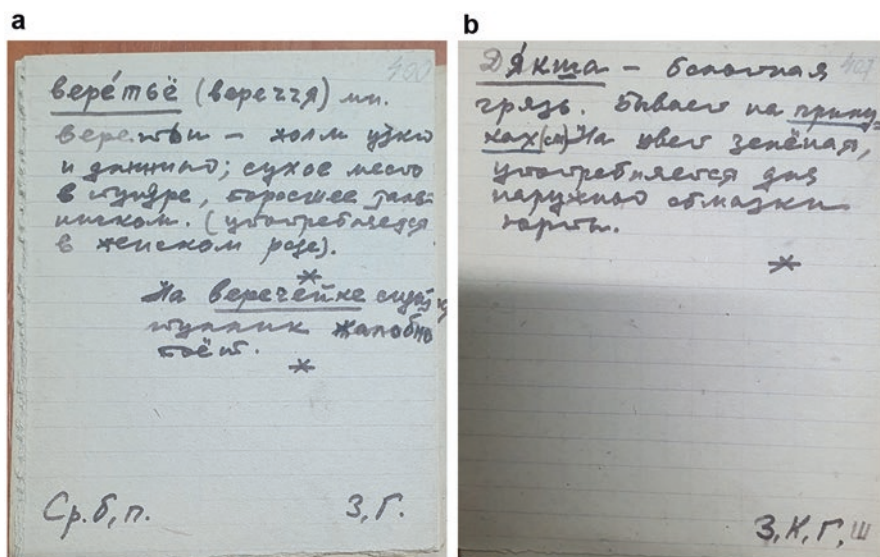 a
400
вере́тьё (вереччя) мн.
веретьи – холм узкий
и длинный; сухое место
в тундре, поросшее таль-
ником. (употребляется
в женском роде).
На веречейке
туллик жалобно
поёт.
Ср. б, п.
З, Г.
b
Дя́кша – болотная
грязь. Бывает на
(см) На цвет зелёная,
употребляется для
наружной обмазки
юрты.
З, К, Г, Ш